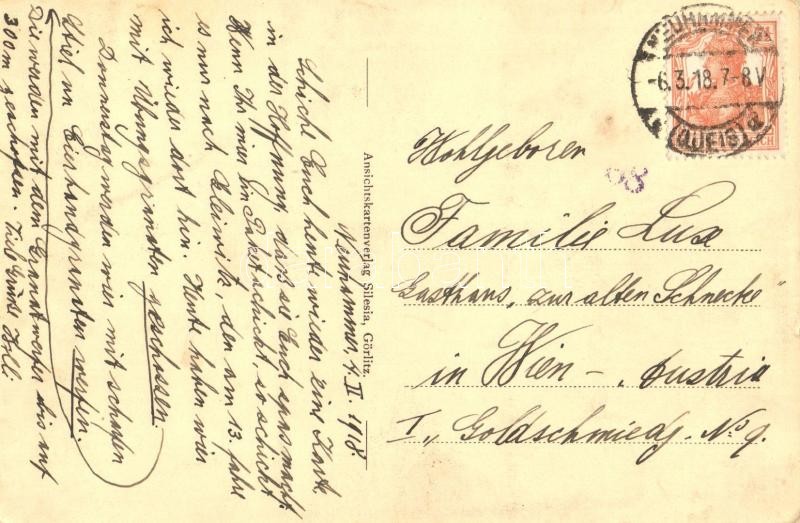 Neuhammer, 4. II 1918
Schicke Euch heute wieder eine Karte
in der Hoffnung, dass sie Euch spass macht.
Wenn Ihr mir ein Paket schickt, so schickt
es nur nach Gleiwitz, den am 13. fahre
ich wieder dort hin. Heute haben wir
mit Übungsgranaten geschossen.
Donnerstag werden wir mit scharfen
Stiel und Eierhandgranaten werfen.
Die werden mit dem Granatwerfer bis auf
300 m geschossen. Viele Grüße
Ansichtskartenverlag Silesia, Görlitz.
NEUHAMMER
-6.3.18.7-8V
(QUEIS)
98
Wohlgeboren
Familie Lux
Gasthaus "zur alten Schnecke"
in Wien - Austria
I., Goldschmiedg. No 9.